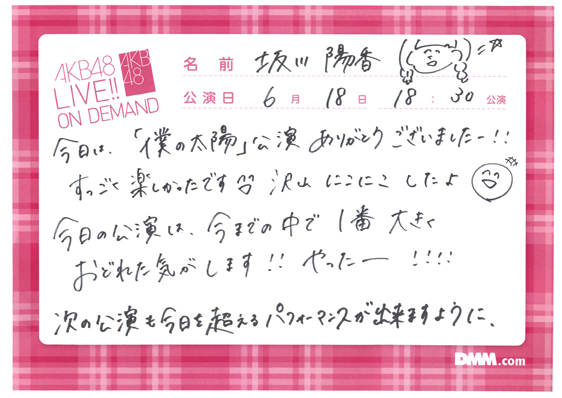 AKB48
LIVE!!
ON DEMAND
AKB
48
名前 坂川 陽香
公演日 6月 18日 18:30 公演
今日は、「僕の太陽」公演 ありがとうございましたー!!
すっごく楽しかったです 沢山 にこにこ したよ
今日の公演は、今までの中で 1番 大きく
おどれた気がします!! やったー !!!!
次の公演も今日を超えるパフォーマンスが出来ますように、
DMM.com